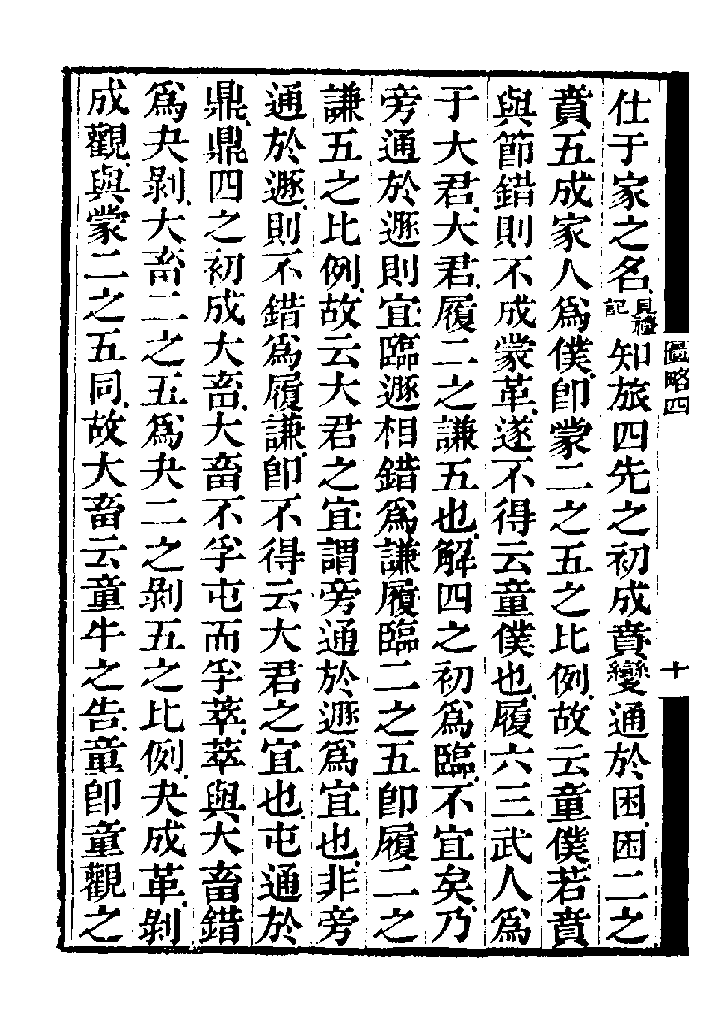 仕于家之名見禮記知旅四先之初成賁變通於困困二之
賁五成家人爲僕卽蒙二之五之比例故云童僕若賁
與節錯則不成蒙革遂不得云童僕也履六三武人爲
于大君大君履二之謙五也解四之初爲臨不宜矣乃
旁通於遯則宜臨遯相錯爲謙履臨二之五卽履二之
謙五之比例故云大君之宜謂旁通於遯爲宜也非旁
通於遯則不錯爲履謙卽不得云大君之宜也屯通於
鼎鼎四之初成大畜大畜不孚屯而孚萃萃與大畜錯
爲夬剝大畜二之五爲夬二之剝五之比例夬成革剝
成觀與蒙二之五同故大畜云童牛之告童卽童觀之
圖略四
十